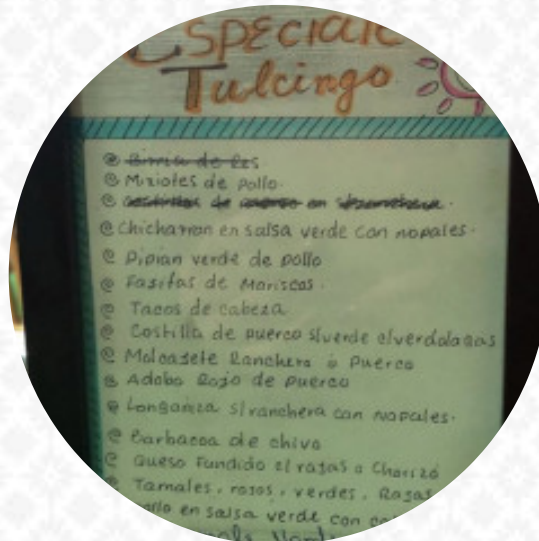 Tulcingo
Birria de Res
Mixiotes de pollo.
de en
Chicharron en salsa verde con nopales.
Pipian verde de pollo
Fajitas de Mariscos.
Tacos de cabeza
Costilla de puerco s/verde c/verdolagas
Molcajete Ranchero o Puerco
Adobo Rojo de puerco
Longaniza s/ranchera con nopales.
Barbacoa de chivo
Queso Fundido c/rajas o Chorizo
Tamales, rojos, verdes, Rajas
en salsa verde con